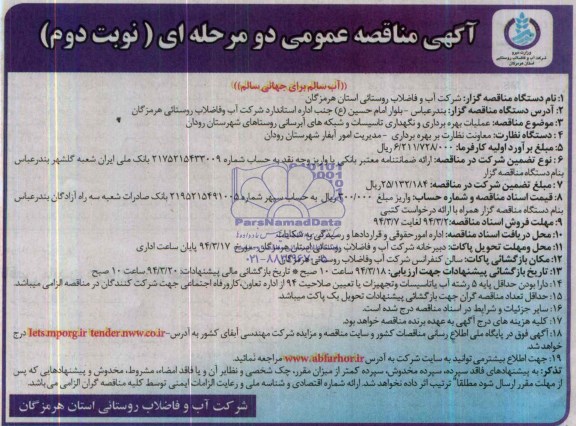 آگهی مناقصه عمومی دو مرحله ای ( نوبت دوم)
وزارت نیرو
شرکت آب و فاضلاب روستایی
استان هرمزگان
((آب سالم برای جهانی سالم))
۱: نام دستگاه مناقصه گزار: شرکت آب و فاضلاب روستائی استان هرمزگان
۲: آدرس دستگاه مناقصه گزار: بندرعباس - بلوار امام حسین (ع) جنب اداره استاندارد شرکت آب وفاضلاب روستائی هرمزگان
۳: موضوع مناقصه: عملیات بهره برداری و نگهداری تاسیسات و شبکه های آبرسانی روستاهای شهرستان رودان
۴: دستگاه نظارت: معاونت نظارت بر بهره برداری - مدیریت امور آبفار شهرستان رودان
۵: مبلغ برآورد اولیه کارفرما: ۶/۲۱۱/۷۲۸/۰۰۰ ریال
۶: نوع تضمین شرکت در مناقصه: ارائه ضمانتنامه معتبر بانکی یا واریز وجه نقد به حساب شماره ۲۱۷۵۲۱۵۴۳۳۰۰۹ بانک ملی ایران شعبه گلشهر بندرعباس
بنام دستگاه مناقصه گزار
۷: مبلغ تضمین شرکت در مناقصه: ۲۵/۱۳۲/۱۸۴ریال
۸: قیمت اسناد مناقصه و شماره حساب: واریز مبلغ ۳۰۰/۰۰۰ ریال به حساب سپهر شماره ۲۱۹۵۲۱۵۴۹۱۰۰۵ بانک صادرات شعبه سه راه آزادگان بندرعباس
بنام دستگاه مناقصه گزار همراه با ارائه درخواست کتبی
۹: مهلت فروش اسناد مناقصه: ۹۴/۳/۲ لغایت ۹۴/۳/۷
۱۰: محل دریافت اسناد مناقصه: اداره امورحقوقی و قراردادها و رسیدگی به شکایات
۱۱: محل ومهلت تحویل پاکات: دبیرخانه شرکت آب و فاضلاب روستائی استان هرمزگان مورخ ۹۴/۳/۱۷ پایان ساعت اداری
۱۲: مکان بازگشائی پاکات: سالن کنفرانس شرکت آب وفاضلاب روستائی هرمزگان
۱۳: تاریخ بازگشائی پیشنهادات جهت ارزیابی: ۹۴/۳/۱۸ ساعت ۱۰ صبح * تاریخ بازگشائی مالی پیشنهادات ۹۴/۳/۲۰ ساعت ۱۰ صبح
۱۴: دارا بودن حداقل پایه ۵ رشته آب یاتاسیسات وتجهیزات یا تعیین صلاحیت ۹۴ از اداره تعاون،کارورفاه اجتماعی جهت شرکت کنندگان در مناقصه الزامی میباشد.
۱۵: حداقل تعداد مناقصه گران جهت بازگشائی پیشنهادات تحویل یک پاکت میباشد
۱۶: سایر جزئیات و شرایط در اسناد مناقصه درج شده است.
۱۷: کلیه هزینه های درج آگهی به عهده برنده مناقصه خواهد بود.
۱۸: آگهی فوق در پایگاه ملی اطلاع رسانی مناقصات کشور و سایت مناقصه و مزایده شرکت مهندسی آبفای کشور به آدرس- iets.mporg.ir tender.nww.co.ir درج
خواهد شد.
۱۹: جهت اطلاع بیشترمی توانید به سایت شرکت به آدرس www.abfarhor.ir مراجعه نمائید.
تذکر: به پیشنهادهای فاقد سپرده، سپرده مخدوش، سپرده کمتر از میزان مقرر، چک شخصی و نظایر آن و یا فاقد امضاء، مشروط، مخدوش و پیشنهادهایی که پس
از مهلت مقرر ارسال شود مطلقا" ترتیب اثر داده نخواهد شد. ارائه شماره اقتصادی و شناسه ملی و رعایت الزامات ایمنی توسط کلیه مناقصه گران الزامی می‌باشد.
شرکت آب و فاضلاب روستائی استان هرمزگان
ParsNamadData